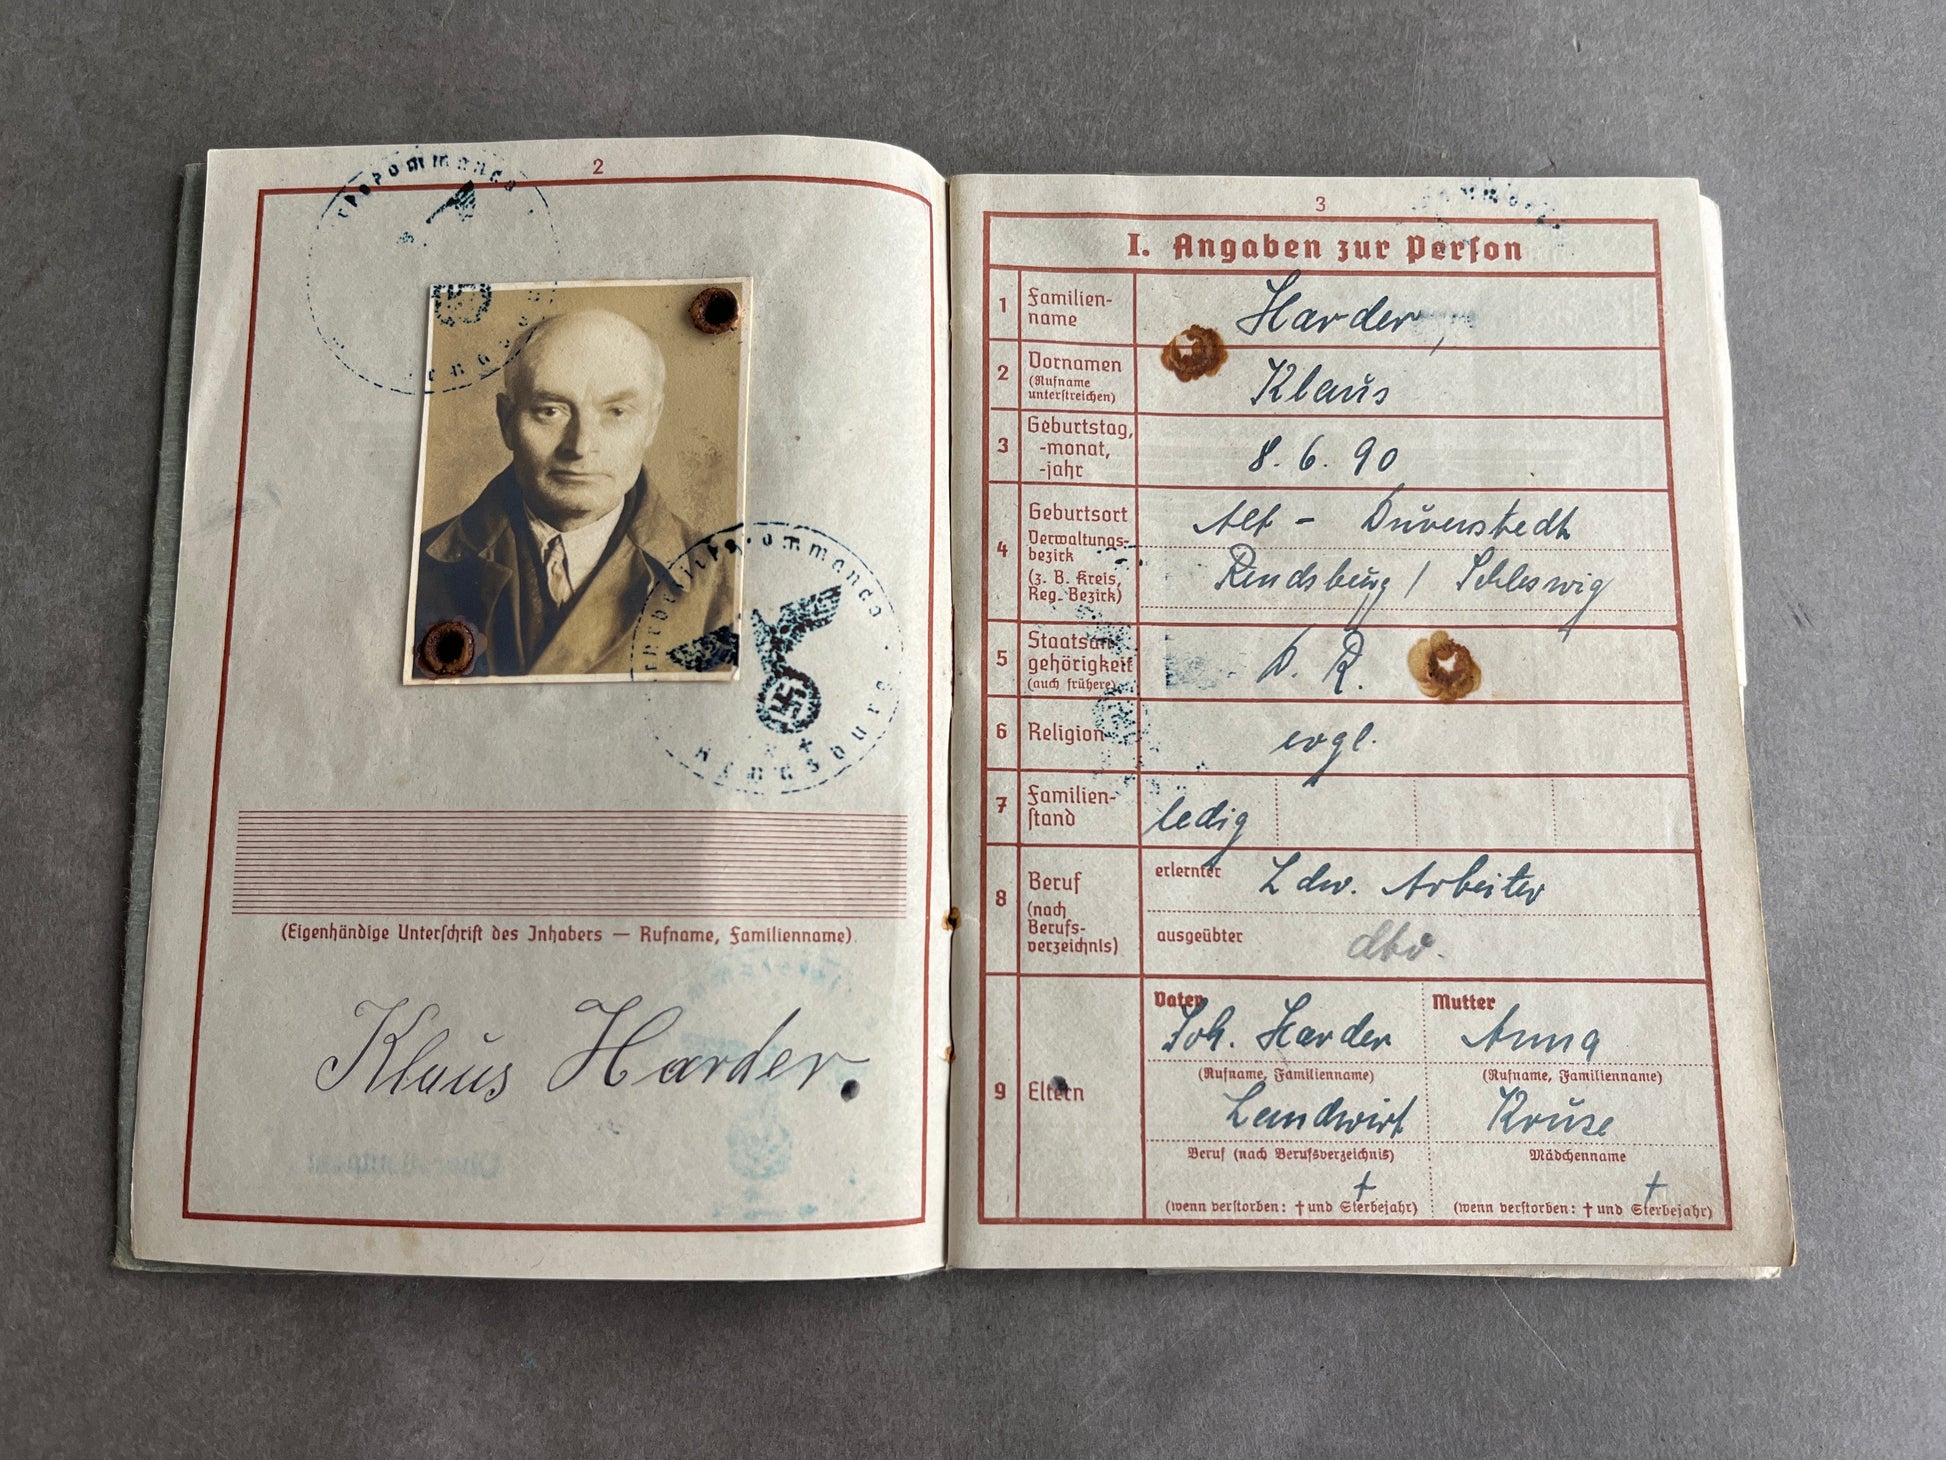 2
(Eigenhändige Unterschrift des Inhabers — Rufname, Familienname)
Klaus Harder.
3
I. Angaben zur Person
1 Familien-
name
Harder,
2 Vornamen
(Rufname
unterstreichen)
Klaus
3 Geburtstag,
-monat,
-jahr
8. 6. 90
4 Geburtsort
Verwaltungs-
bezirk
(z. B. Kreis,
Reg.-Bezirk)
Alt - Duvenstedt
Rendsburg / Schleswig
5 Staatsan-
gehörigkeit
(auch frühere)
D. R.
6 Religion
evgl.
7 Familien-
stand
ledig
8 Beruf
(nach
Berufs-
verzeichnis)
erlernter Ldw. Arbeiter
ausgeübter
9 Eltern
Vater
Joh. Harder
(Rufname, Familienname)
Landwirt
Beruf (nach Berufsverzeichnis)
†
(wenn verstorben: † und Sterbejahr)
Mutter
Anna
(Rufname, Familienname)
Kruse
Mädchenname
†
(wenn verstorben: † und Sterbejahr)